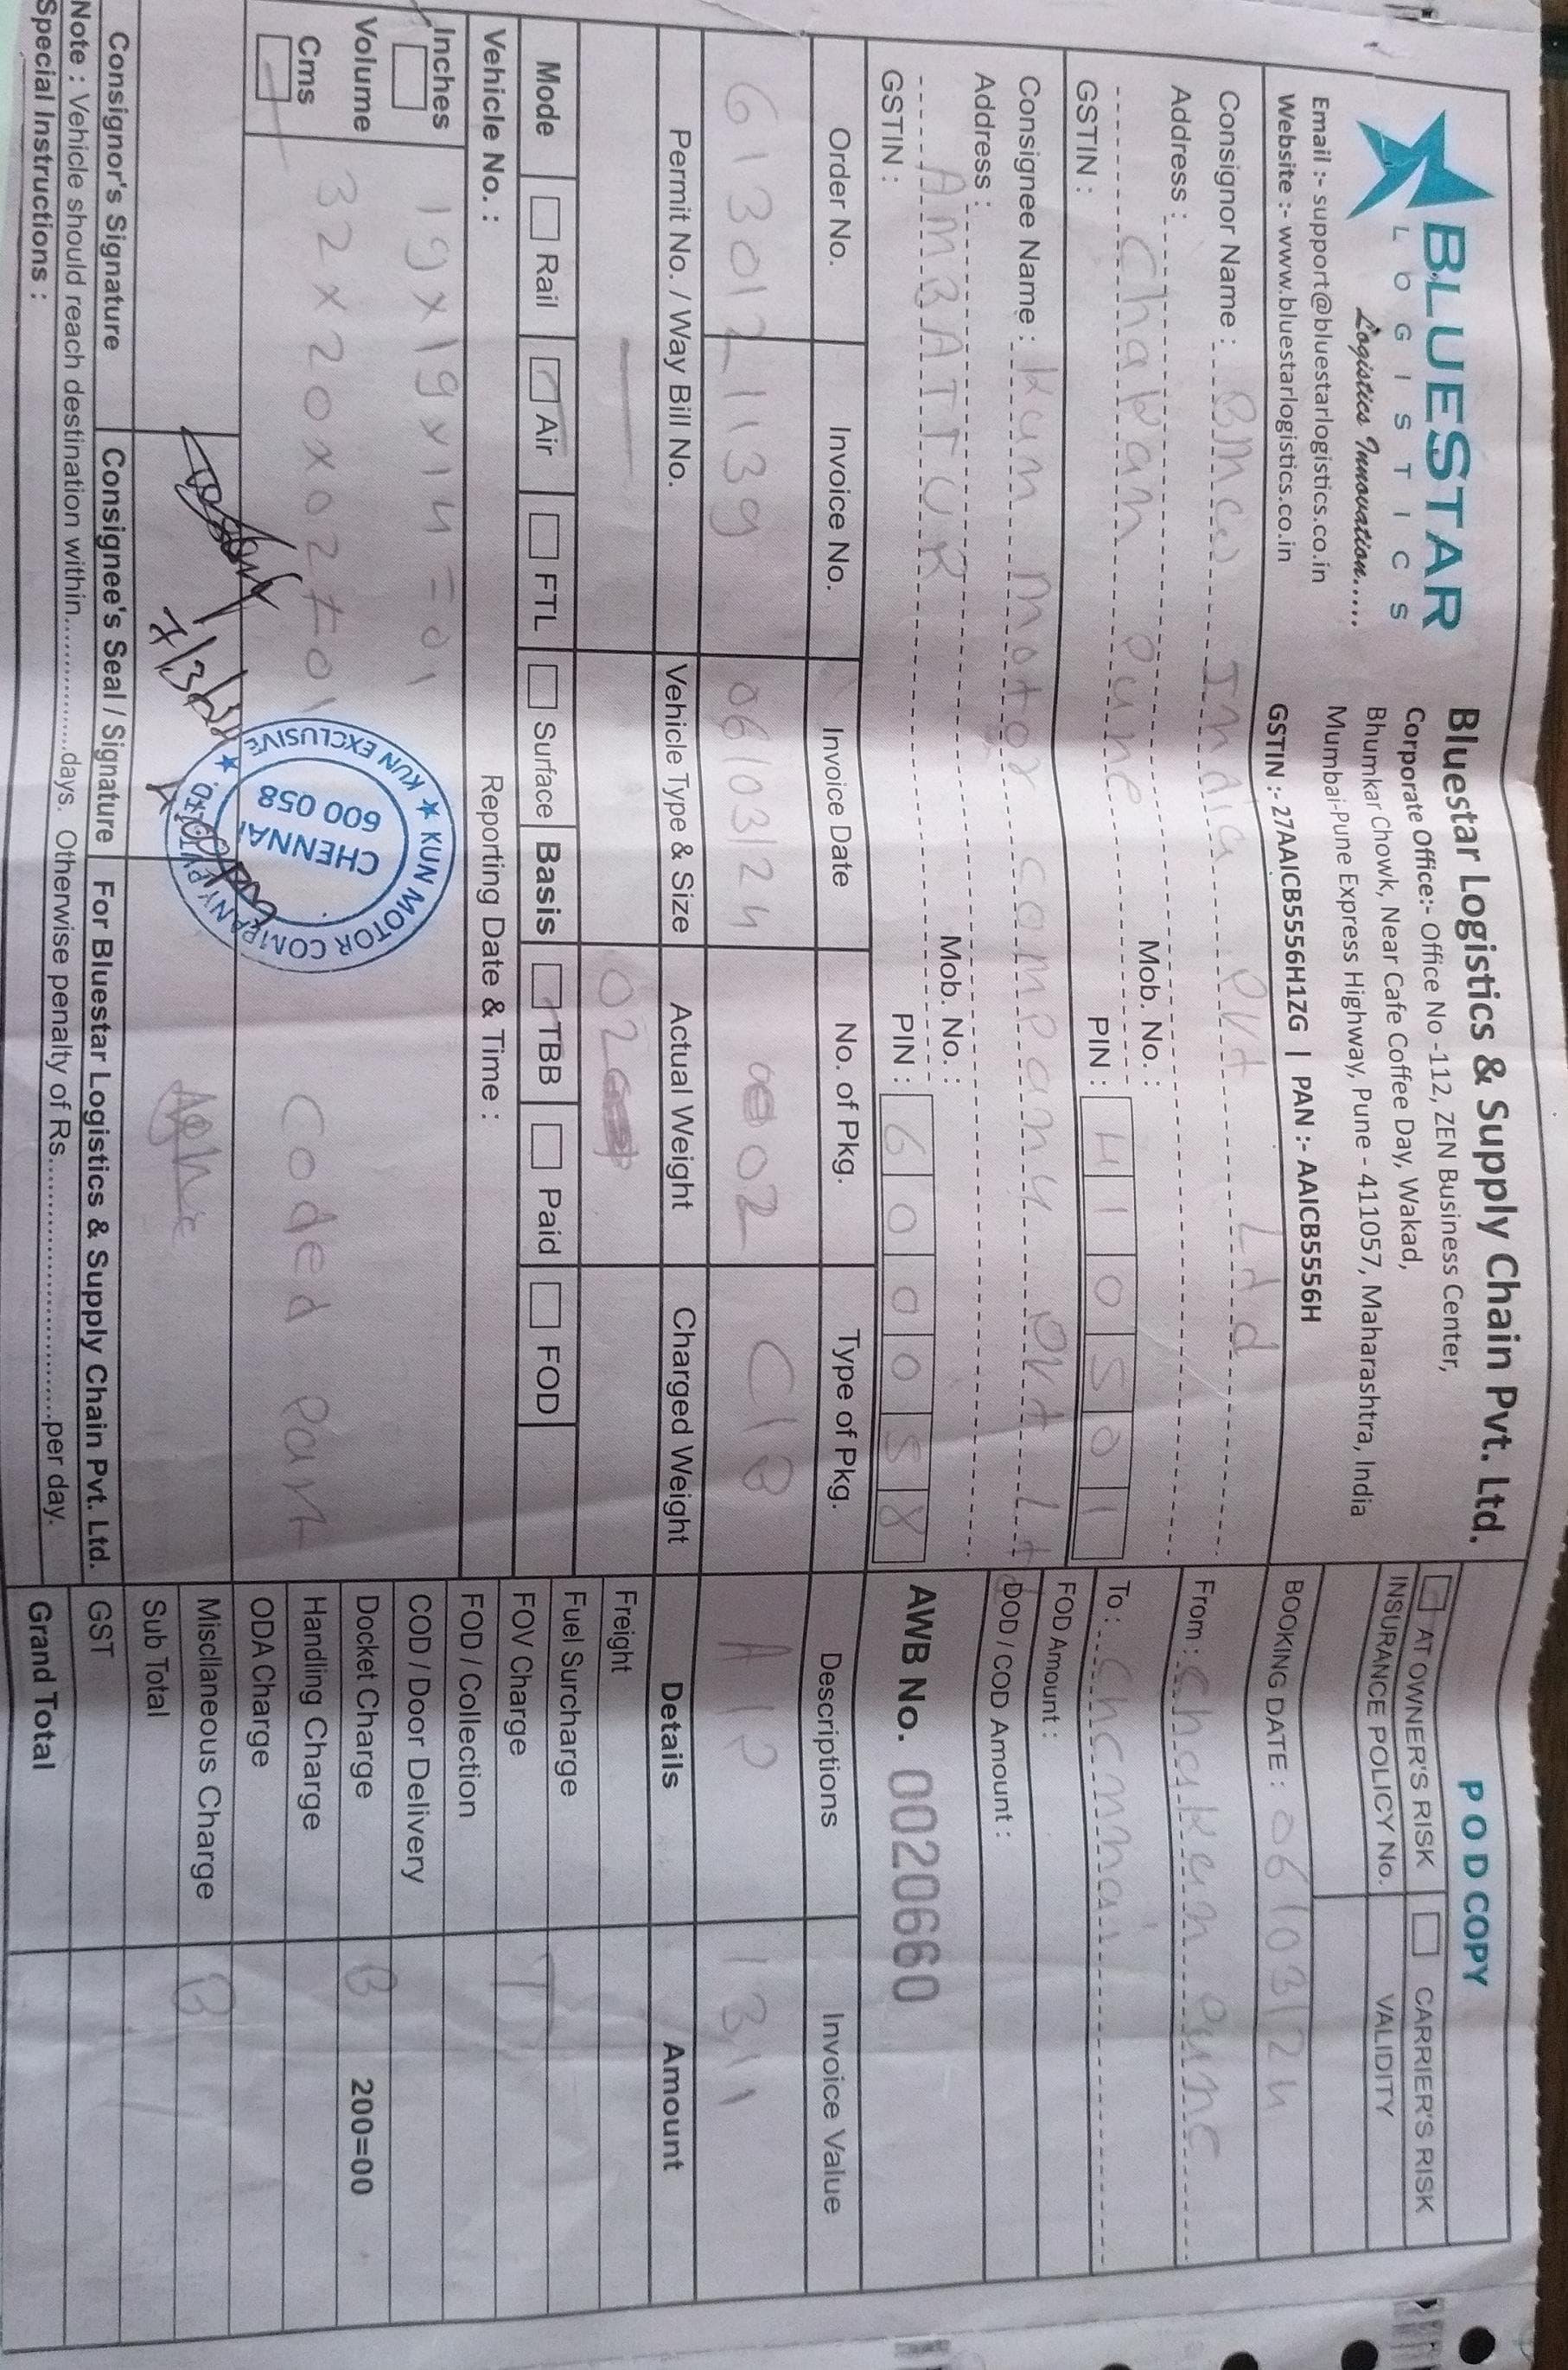 BLUESTAR
LOGISTICS
Logistics Innovation.....
Email :- support@bluestarlogistics.co.in
Website :- www.bluestarlogistics.co.in
Bluestar Logistics & Supply Chain Pvt. Ltd.
Corporate Office:- Office No -112, ZEN Business Center,
Bhumkar Chowk, Near Cafe Coffee Day, Wakad,
Mumbai-Pune Express Highway, Pune - 411057, Maharashtra, India
GSTIN :- 27AAICB5556H1ZG | PAN :- AAICB5556H
POD COPY
AT OWNER'S RISK CARRIER'S RISK
INSURANCE POLICY No. VALIDITY
BOOKING DATE : 06/03/24
From : Chakan Pune
To : Chennai
FOD Amount :
DOD / COD Amount :
AWB No. 0020660
Consignor Name : BMW India Pvt Ltd
Address :
Chakan Pune
Mob. No. :
GSTIN :
PIN : 410501
Consignee Name : Kun Motor company Pvt Ltd
Address :
AMBATTUR
Mob. No. :
GSTIN :
PIN : 600058
Order No. Invoice No. Invoice Date No. of Pkg. Type of Pkg. Descriptions Invoice Value
6130121139 06/03/24 02 C/B A/P 1311
Permit No. / Way Bill No. Vehicle Type & Size Actual Weight Charged Weight
02
Mode Rail Air FTL Surface Basis TBB Paid FOD
Vehicle No. : Reporting Date & Time :
Inches
Volume
Cms
19x19x14=01
32x20x02=01
Coded Part
KUN MOTOR COMPANY PVT. LTD. ★ KUN EXCLUSIVE ★
CHENNAI
600 058
7/3/24
Details Amount
Freight
Fuel Surcharge
FOV Charge T
FOD / Collection
COD / Door Delivery
Docket Charge B 200=00
Handling Charge
ODA Charge
Miscllaneous Charge B
Sub Total
GST
Grand Total
Consignor's Signature
Consignee's Seal / Signature
For Bluestar Logistics & Supply Chain Pvt. Ltd.
Note : Vehicle should reach destination within..................days. Otherwise penalty of Rs..............................per day.
Special Instructions :